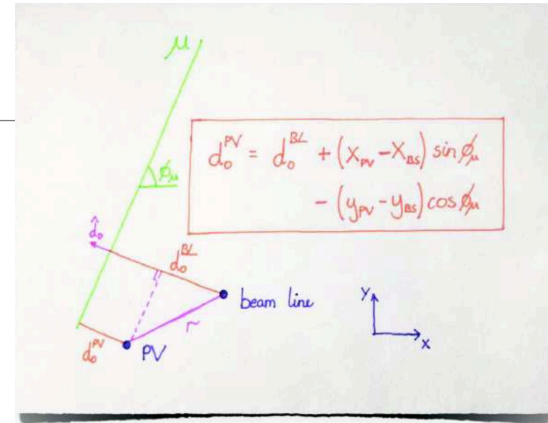 μ
d₀^PV = d₀^BL + (x_PV - x_BS) sin ϕ_μ
- (y_PV - y_BS) cos ϕ_μ
ϕ_μ
d̂₀
d₀^BL
beam line
r
d₀^PV
PV
y
x